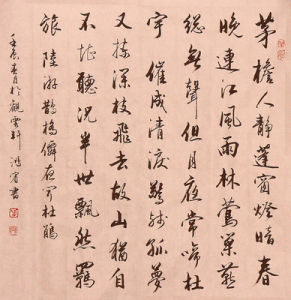 茅檐人靜蓬窗燈暗春
晚連江風雨林鶯巢燕
總無聲但月夜常啼杜
宇催成清淚驚殘孤夢
又揀深枝飛去故山猶自
不堪聽況半世飄然羈
旅 陸游鵲橋仙夜聞杜鵑
壬辰月於觀雲軒書